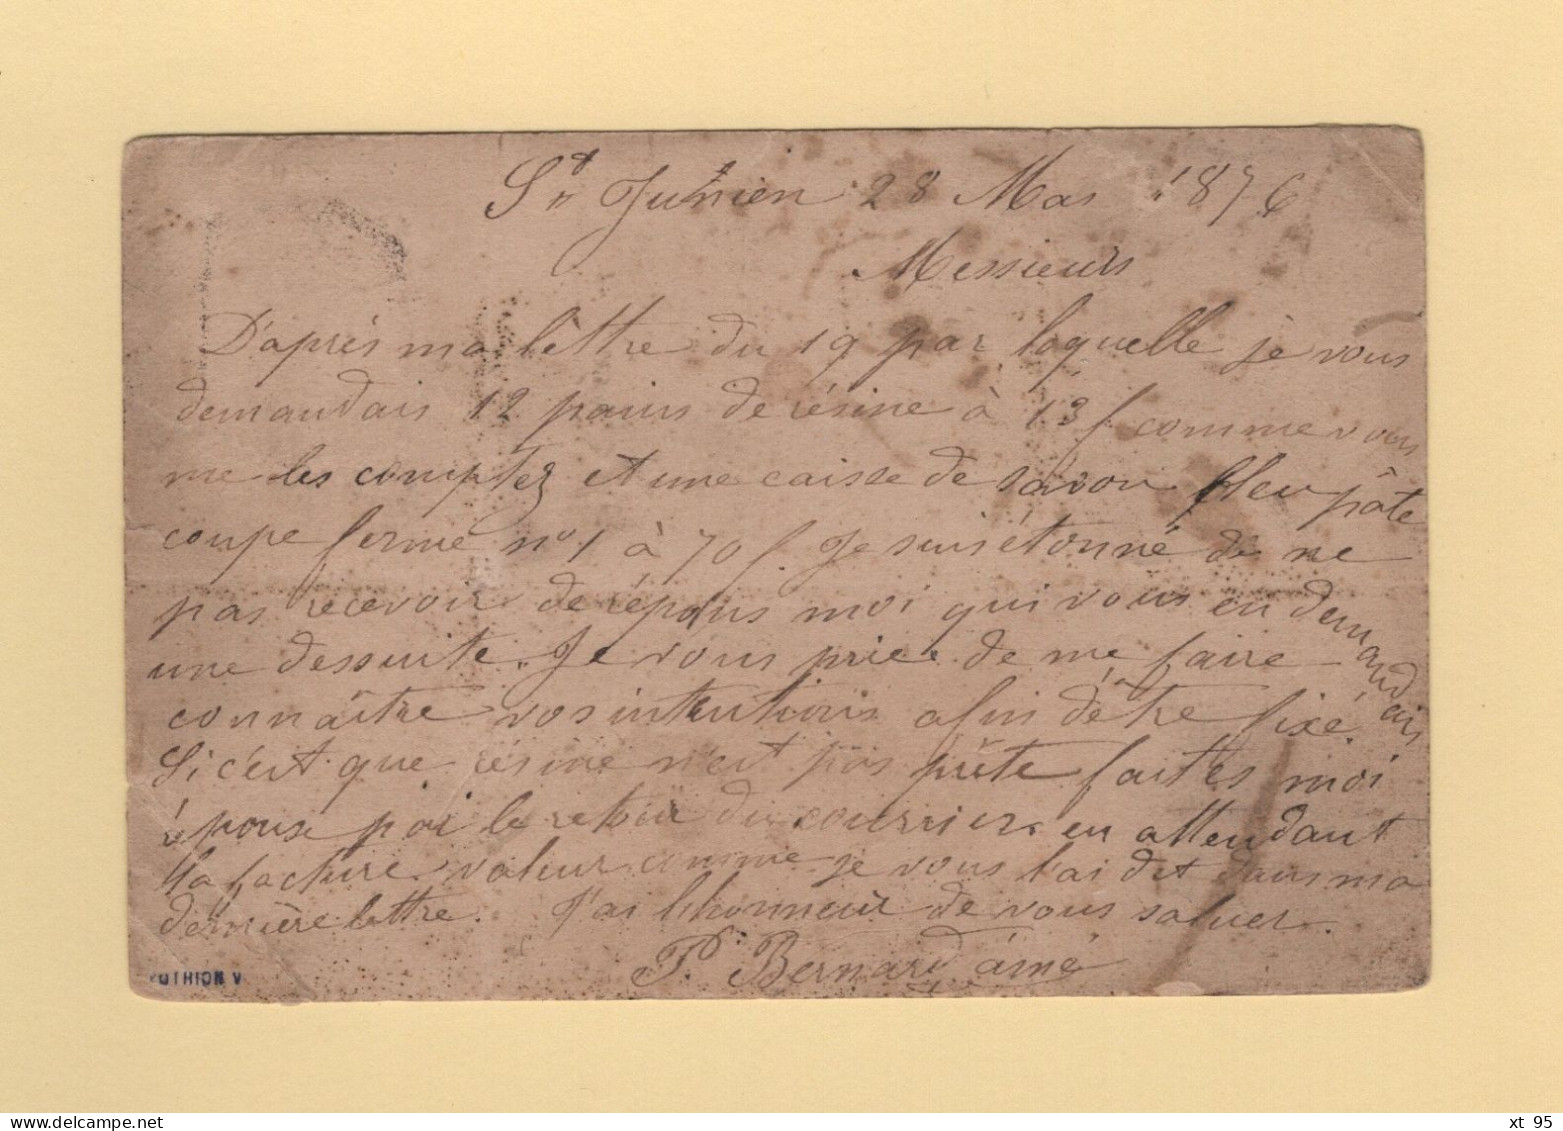 St Junien 28 Mas 1876
Messieurs
D'après ma lèttre du 19 par laquelle je vous
demandais 12 pains de résine à 13 f comme vous
me les comptez et une caisse de savon bleu pâte
coupe ferme n° 1 à 70 f. Je suis étonné de ne
pas recevoir de répons moi qui vous en demandais
une dessuite. Je vous prie de me faire
connaître vos intentions afin d'être fixé.
Si c'est que résine n'est pas prête faites moi
réponse par le retour du courrier en attendant
la facture valeur comme je vous l'ai dit dans ma
dernière lettre. J'ai lhonneur de vous saluer.
P. Bernard ainé
OTHION V
xt 95